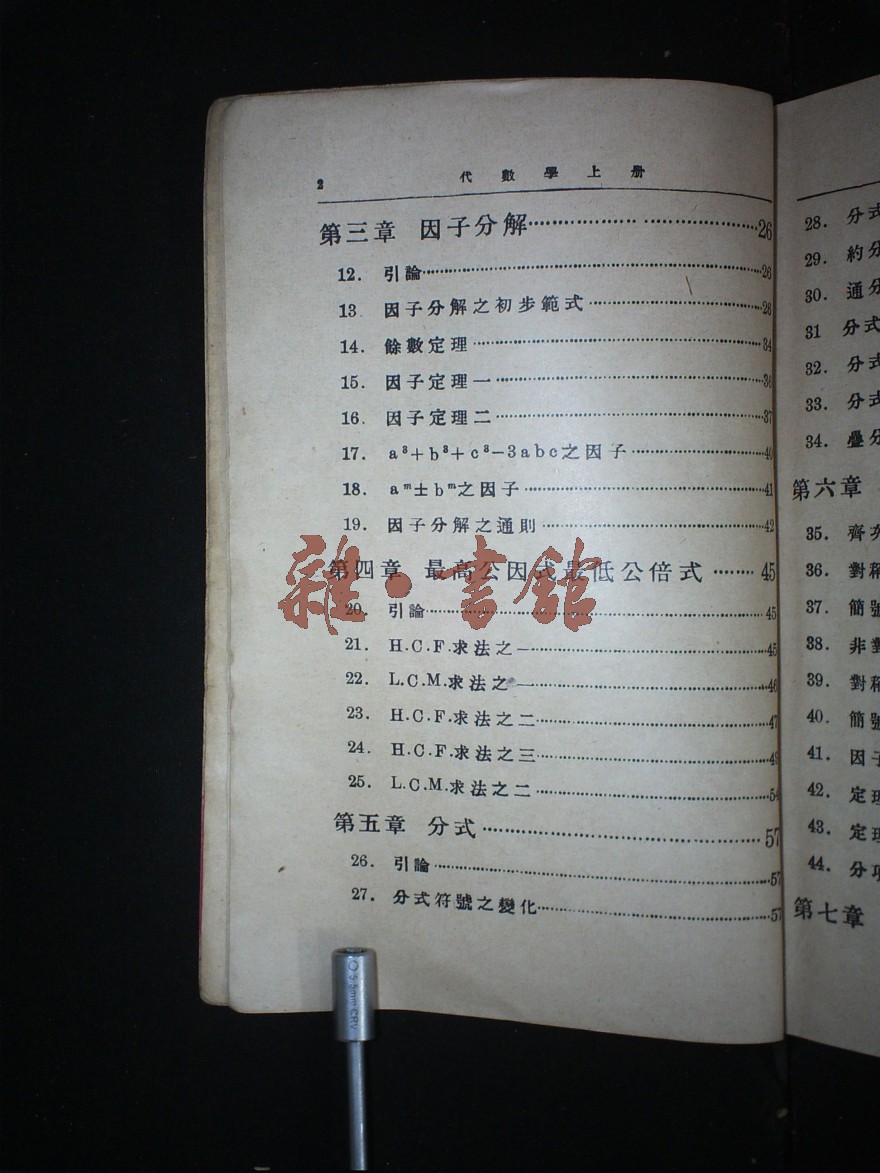 2 代數學上册
第三章 因子分解……………………26
12. 引論……………………26
13. 因子分解之初步範式……………………26
14. 餘數定理……………………34
15. 因子定理一……………………36
16. 因子定理二……………………37
17. a³+b³+c³−3abc之因子……………………40
18. aᵐ±bᵐ之因子……………………41
19. 因子分解之通則……………………42
第四章 最高公因式最低公倍式……45
20. 引論……………………45
21. H.C.F.求法之一……………………45
22. L.C.M.求法之一……………………46
23. H.C.F.求法之二……………………47
24. H.C.F.求法之三……………………49
25. L.C.M.求法之二……………………54
第五章 分式……………………57
26. 引論……………………57
27. 分式符號之變化……………………57
雜·書館
28. 分式
29. 約分
30. 通分
31 分式
32. 分式
33. 分式
34. 疊分
第六章
35. 齊次
36. 對稱
37. 簡號
38. 非對
39. 對稱
40. 簡號
41. 因子
42. 定理
43. 定理
44. 分項
第七章
5.5mm CRV